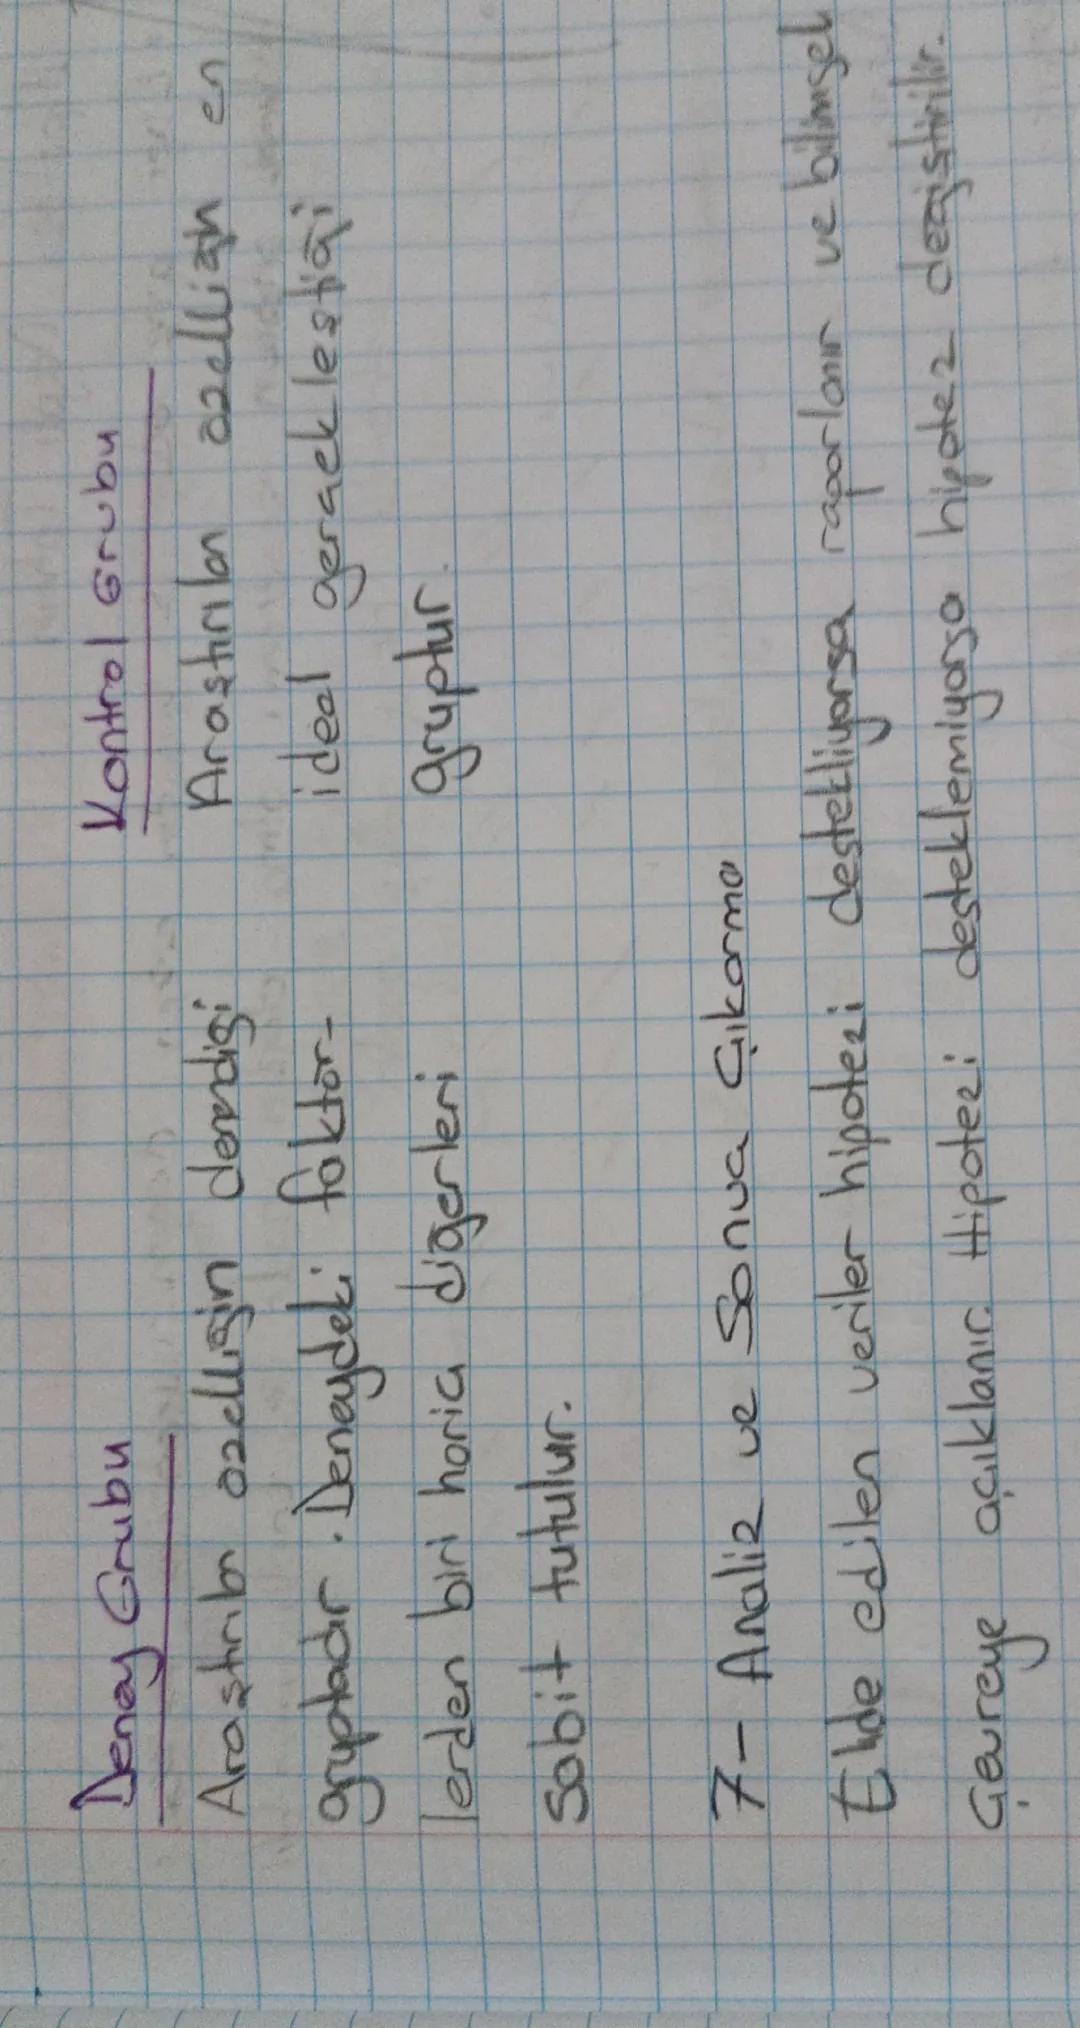 Deney Grubu
Kontrol Grubu
Araştırılan özelliğin denendiği
gruptadır. Deneydeki faktör-
lerden biri hariç diğerleri
Sabit tutulur.
Araştırılan özelliğin en
ideal gerçekleştiği
gruptur.
7- Analiz ve Sonuç Çıkarma
Elde edilen veriler hipotezi destekliyorsa raporlanır ve bilimsel
Çevreye açıklanır. Hipotezi desteklemiyorsa hipotez değiştirilir.